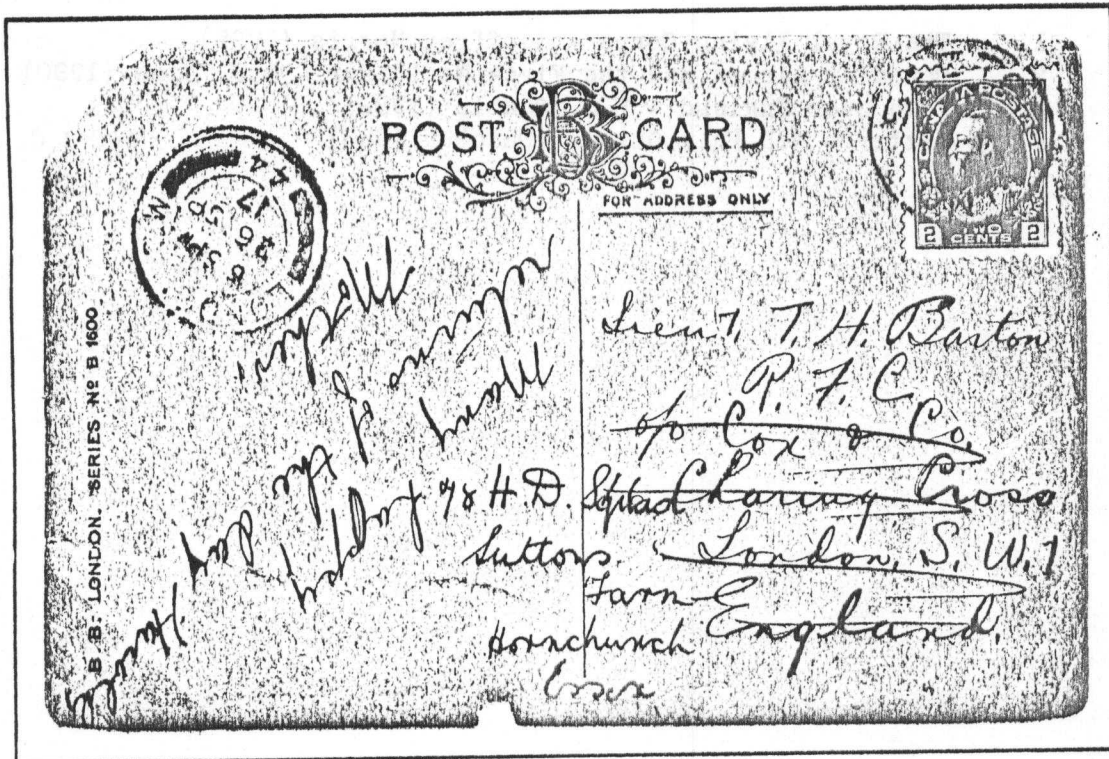 POST CARD
FOR ADDRESS ONLY
CANADA POSTAGE
2 TWO CENTS 2
B. B. LONDON. SERIES Nº B 1600
LONDON
44
17
Many
happy
returns of the day
Mother
Lieut. T. H. Barton
R. F. C.
c/o Cox & Co.
Charing Cross
London, S. W. 1
England.
78 H. D. Squad
Suttons
Farm
Hornchurch
Essex